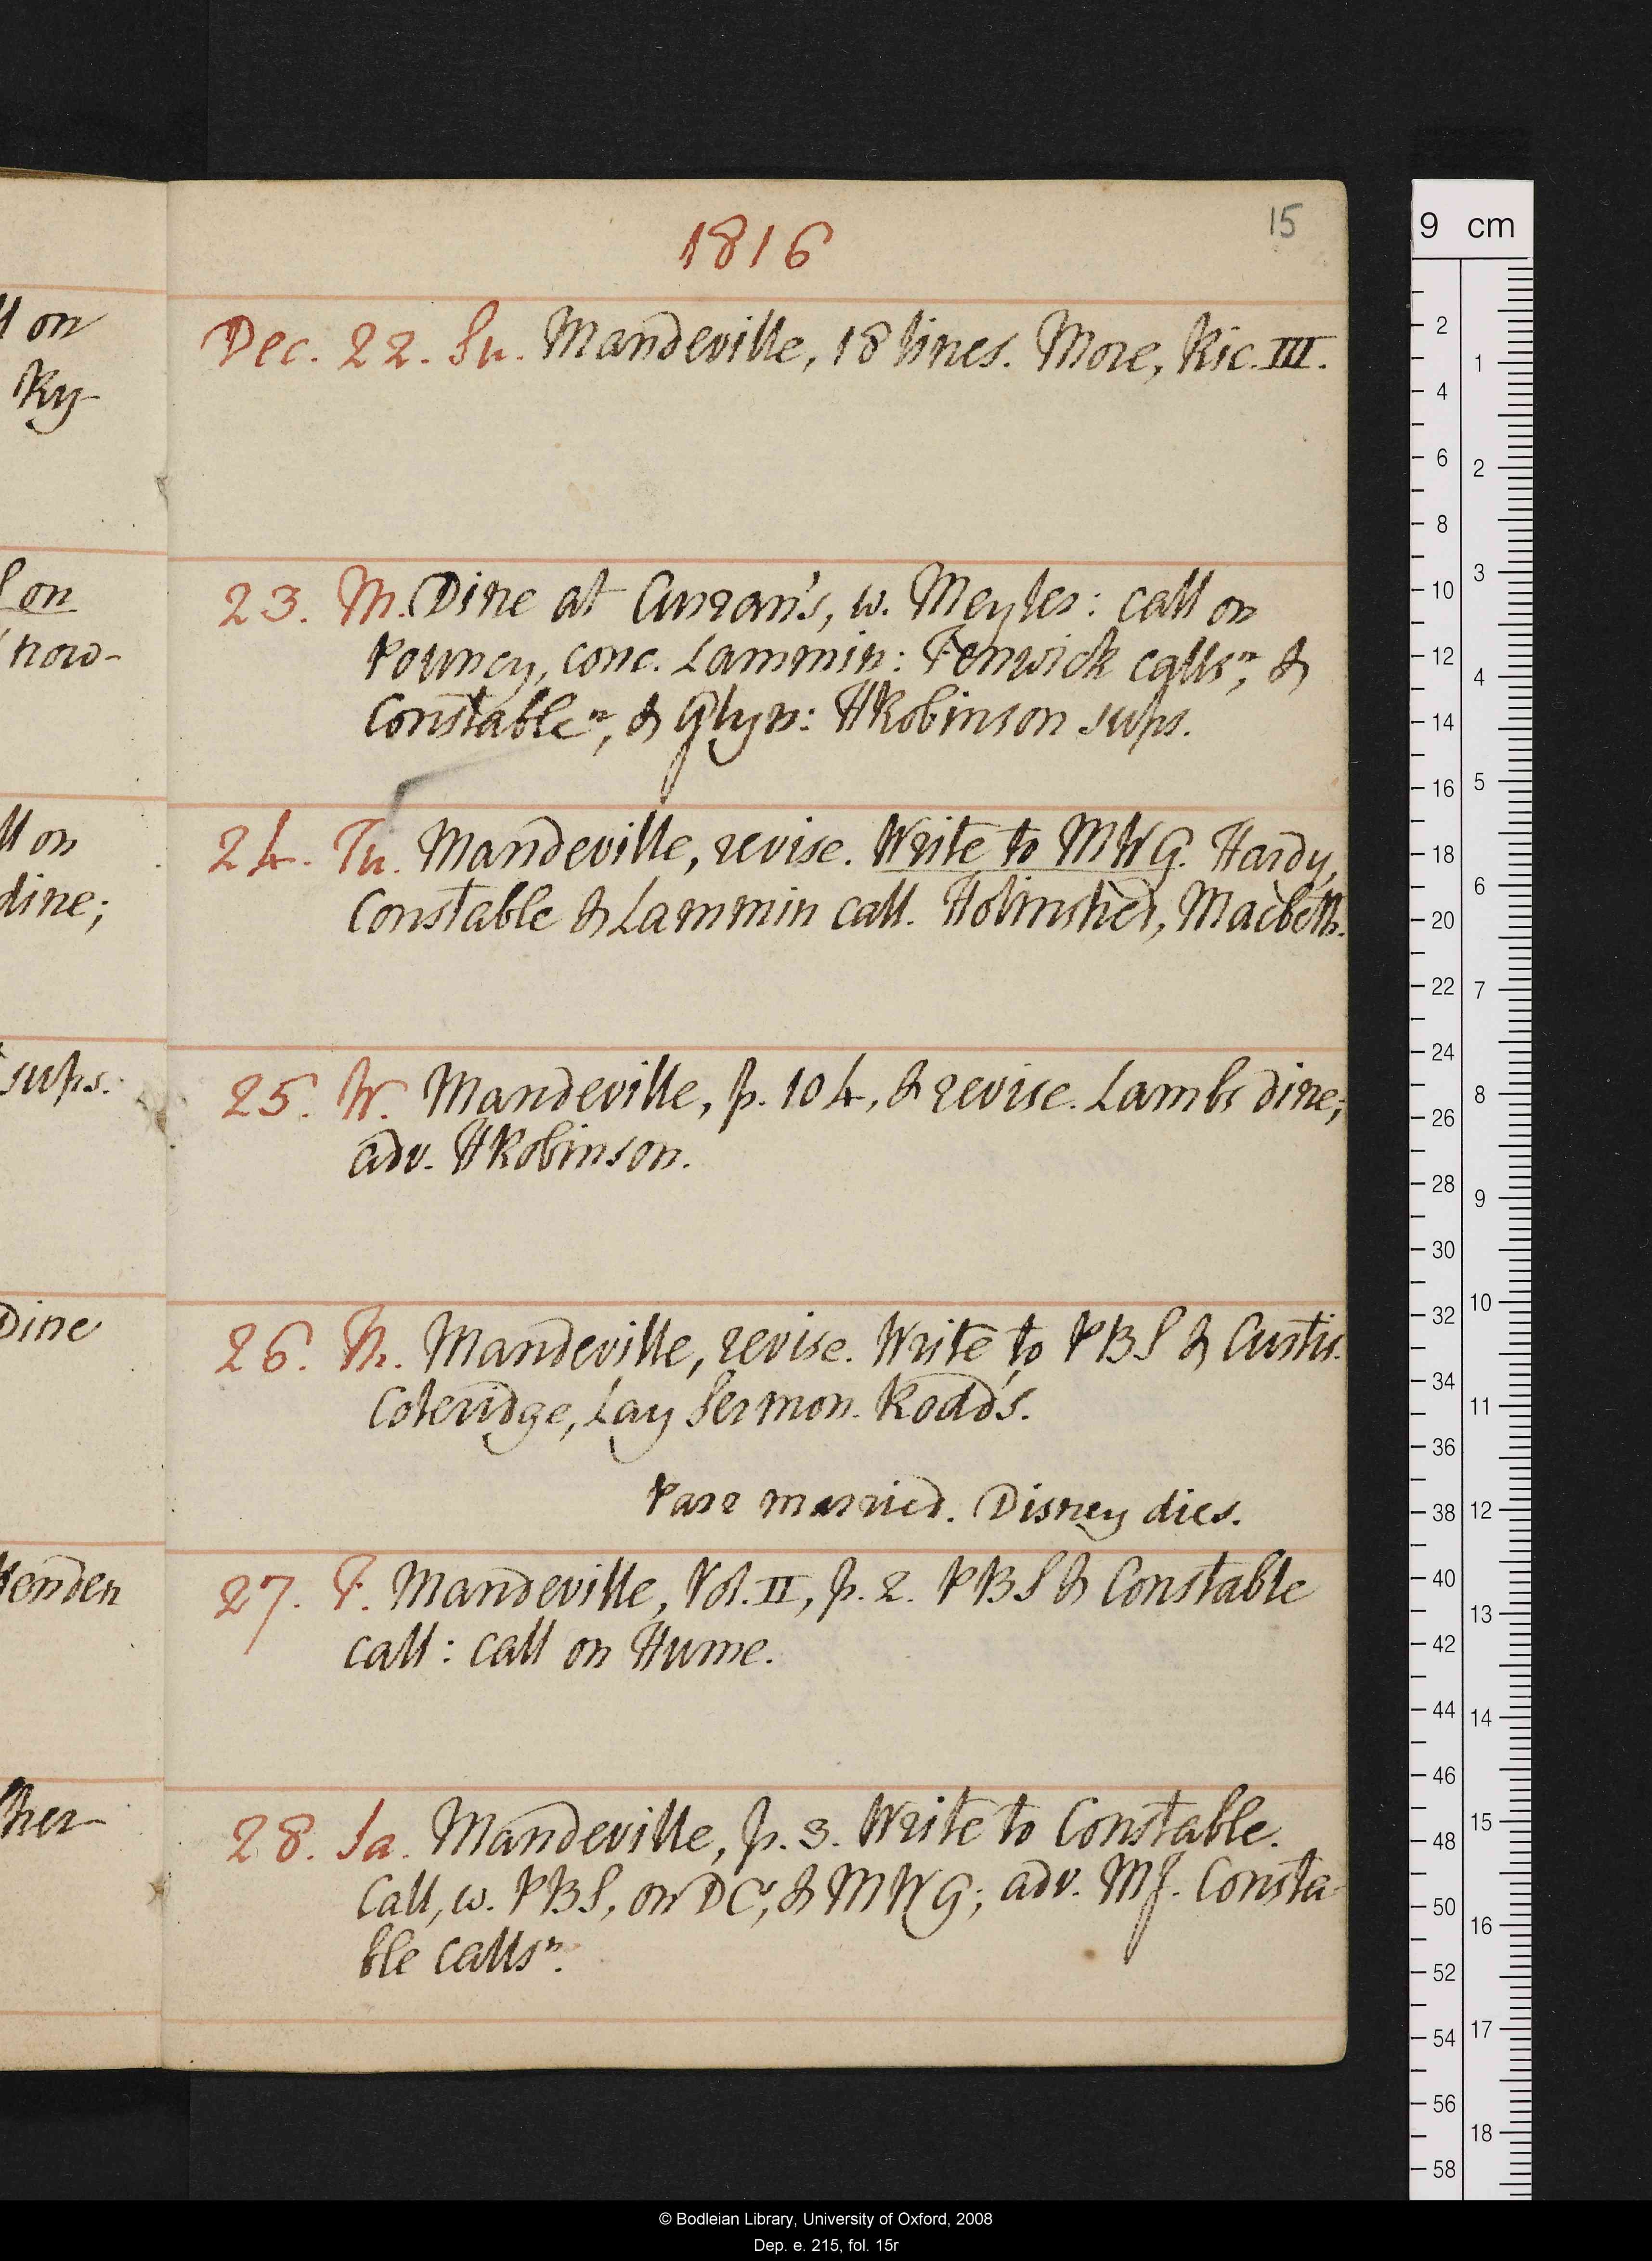 1816
15
Dec. 22. Su. Mandeville, 18 lines. More, Ric. III.
23. M. Dine at Curran's, w. Meyler: call on
Pouncy, conc. Lammin: Fenwick calls n, &
Constable n, & Glyn: HRobinson sups.
24. Tu. Mandeville, revise. Write to MWG. Hardy,
Constable & Lammin call. Holinshed, Macbeth.
25. W. Mandeville, p. 104, & revise. Lambs dine;
adv. HRobinson.
26. Th. Mandeville, revise. Write to PBS & Curtis.
Coleridge, Lay Sermon. Rodd's.
Parr married. Disney dies.
27. F. Mandeville, Vol. II, p. 2. PBS & Constable
call: call on Hume.
28. Sa. Mandeville, p. 3. Write to Constable.
Call, w. PBS, on DCt, & MWG; adv. MJ. Consta-
ble calls n.
ll on
Ry-
l on
now-
ll on
dine;
sups.
Dine
her-
9 cm
2
4
6
8
10
12
14
16
18
20
22
24
26
28
30
32
34
36
38
40
42
44
46
48
50
52
54
56
58
1
2
3
4
5
6
7
8
9
10
11
12
13
14
15
16
17
18
© Bodleian Library, University of Oxford, 2008
Dep. e. 215, fol. 15r